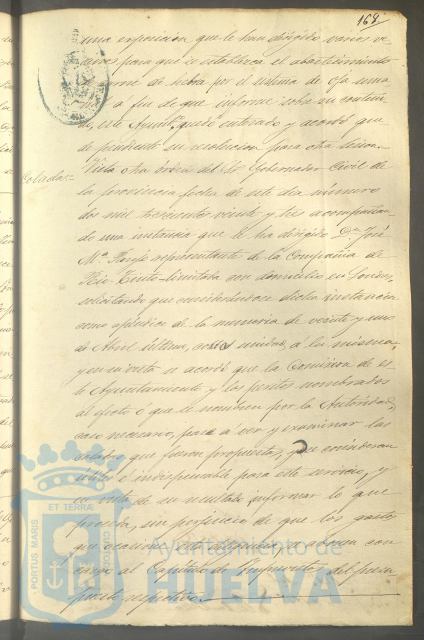 168
una exposicion que le han dirijido varios ve
cinos para que se establezca el abastecimiento
de carne de hebra por el sistema de
a fin de que informe sobre su conteni
do, este Ayuntº quedó enterado y acordó que
de pendiente su resolucion para otra sesion.
Colada=
Vista otra orden del Sr Gobernador Civil de
la provincia fecha de este dia número
dos mil trescientos veinte y tres acompañan
do una instancia que le ha dirijido Dn José
Mª representante de la Compañia de
Rio Tinto limitada con domicilio en Londres,
solicitando que considerándose dicha instancia
como apéndice de la memoria de veinte y uno
de Abril último, sea unida á la misma
y en su vista se acordó que la Comision de es
te Ayuntamiento y los peritos nombrados
al efecto ó que se nombren por la Autoridad,
caso necesario, pase á ver y examinar las
coladas que fueron propuestas, y se consideran
útiles é indispensable para este servicio, y
en vista de su resultado, informar lo que
proceda, sin perjuicio de que los gastos
que ocasione esta se abonen con
cargo al Capitulo de Imprevistos del presu
puesto respectivo.
ET TERRÆ
PORTUS MARIS
CUSTODIA
Ayuntamiento de
HUELVA